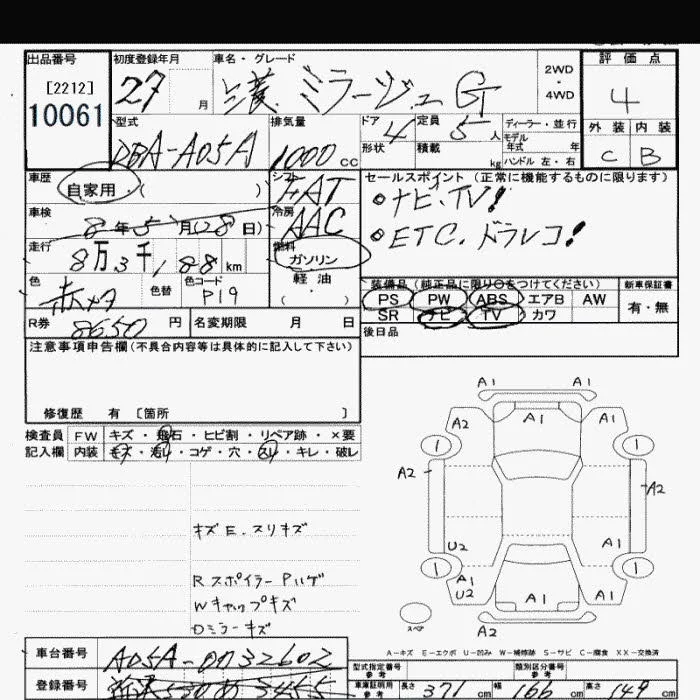 出品番号 初度登録年月 車名・グレード 2WD・4WD 評価点
[2212]
10061
27 月 三菱 ミラージュ G 4
型式 排気量 ドア 定員 ディーラー・並行
DBA-A05A 1000 cc 4 5 人 モデル年式 年
形状 積載 kg ハンドル 左・右
外装 内装
C B
車歴 自家用・( ) シフト FAT
セールスポイント (正常に機能するものに限ります)
◎ナビ、TV!
◎ETC.ドラレコ!
車検 8年5月(28日) 冷房 AAC
走行 8万3千,188km 燃料 ガソリン
軽油
( ・ )
色 赤メタ 色替 色コード P19
装備品 (純正品に限り○をつけてください) 新車保証書
PS PW ABS エアB AW 有・無
SR ナビ TV カワ
R券 8650 円 名変期限 月 日
後日品
注意事項申告欄(不具合内容等は具体的に記入して下さい)
修復歴 有 [箇所 ]
検査員 FW キズ・飛石・ヒビ割・リペア跡・×要
記入欄 内装 キズ・汚レ・コゲ・穴・スレ・キレ・破レ
キズE.スリキズ
Rスポイラー Pハゲ
Wキャップキズ
Dミラーキズ
A1 A1
A2 A1 A1
1 1
A2 A2
U2 A1
1 1
A1
U2 A1 A1
スペア
A2
A-キズ E-エクボ U-凹み W-補修跡 S-サビ C-腐食 XX-交換済
車台番号 A05A-0032602
型式指定番号 参考 類別区分番号 参考
登録番号
車庫証明用 参考 長さ 371 cm 幅 166 cm 高さ 149 cm